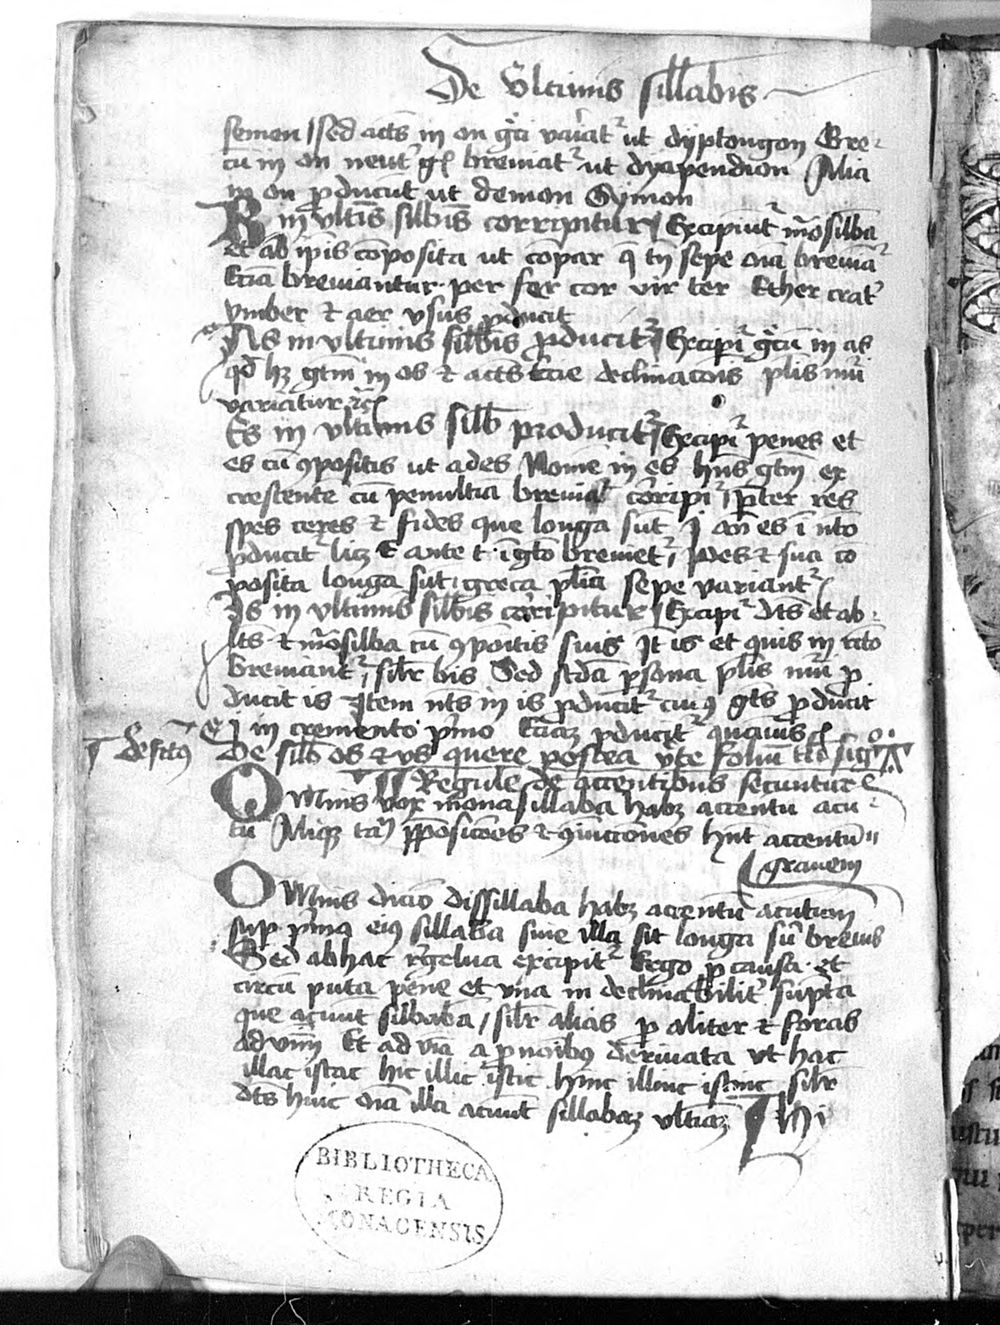 De Vltimis sillabis
semen / Sed acts in on gͣci variat᷑ ut dyptongon Gre-
cū in on neut᷑ gͥ breviat᷑ ut dyapendion / Alia
in on ꝓducūt ut demon Symon
R in vltīs sillbīs corripitur / Excipiūt᷑ mōsilba
et ab ipīs cōposita ut cōpar q̄ tn̄ sepe oīa breviā᷑
Eciā breviantur per fer cor vir ter Ether crat᷑
ymber ⁊ aer vsus ꝓducit
As in vltimis sillbis ꝓducit᷑ / Excipi᷑ gͣcū in as
qd̄ hȝ gtm̄ in os ⁊ acts̄ tͨcie declinacōis plīs nūi
variātur ⁊cͣ
Es in vltimis sillb̄ producit᷑ / Excipi᷑ penes et
es cū ꝯpositis ut ades Nomē in es hn̄s gtm̄ ex
crescente cū penultīa brevi corripi᷑ / Pͬter res
spes ceres ⁊ fides que longa sūt
ꝓducit᷑ licȝ E ante t ī gtō breviet᷑ / Pes ⁊ sua cō
posita longa sūt greca plīa sepe variant᷑
Is in vltimis sillbis corripitur / Excipi᷑ dts̄ et ab-
lts̄ ⁊ mōsilba cū ꝯpoītis suis Jt̄ is et quis in rctō
breviant᷑ / silr̄ bis Sed scdā ꝑsona plīs nūi ꝓ
ducit is Item nts̄ in is ꝓducit᷑ cuiꝰ gts̄ ꝓducit
ei in cremento pͥmo Eciā ꝓducit᷑ quāvis
defectꝰ De sillb̄ os ⁊ vs quere postea vͭte foliū
Regule de accentibus secuntur
OMnis vox monasillaba habȝ accentū acu-
tū Aliqȝ tn̄ p̄posicōes ⁊ ꝯiūcciones hn̄t accentū
gravem
OMnis dictio dissillaba habȝ accentū acutum
suꝑ pͥma eiꝰ sillaba sive illa sit longa sīv brevis
Sed ab hac regelua excipit᷑ Ergo ꝑ causa et
circū puta pene et vna in declinabilit᷑ sūpta
que acuūt sillbaba / silr̄ alias ꝑ aliter ⁊ foras
Et ad via a ꝓnoibꝰ derivata vt hac
illac istac hic illic istic hinc illinc istinc silr̄
dts̄ huic oīa illa acuūt sillabaȝ vltiaȝ
Thi
BIBLIOTHECA
REGIA
MONACENSIS.